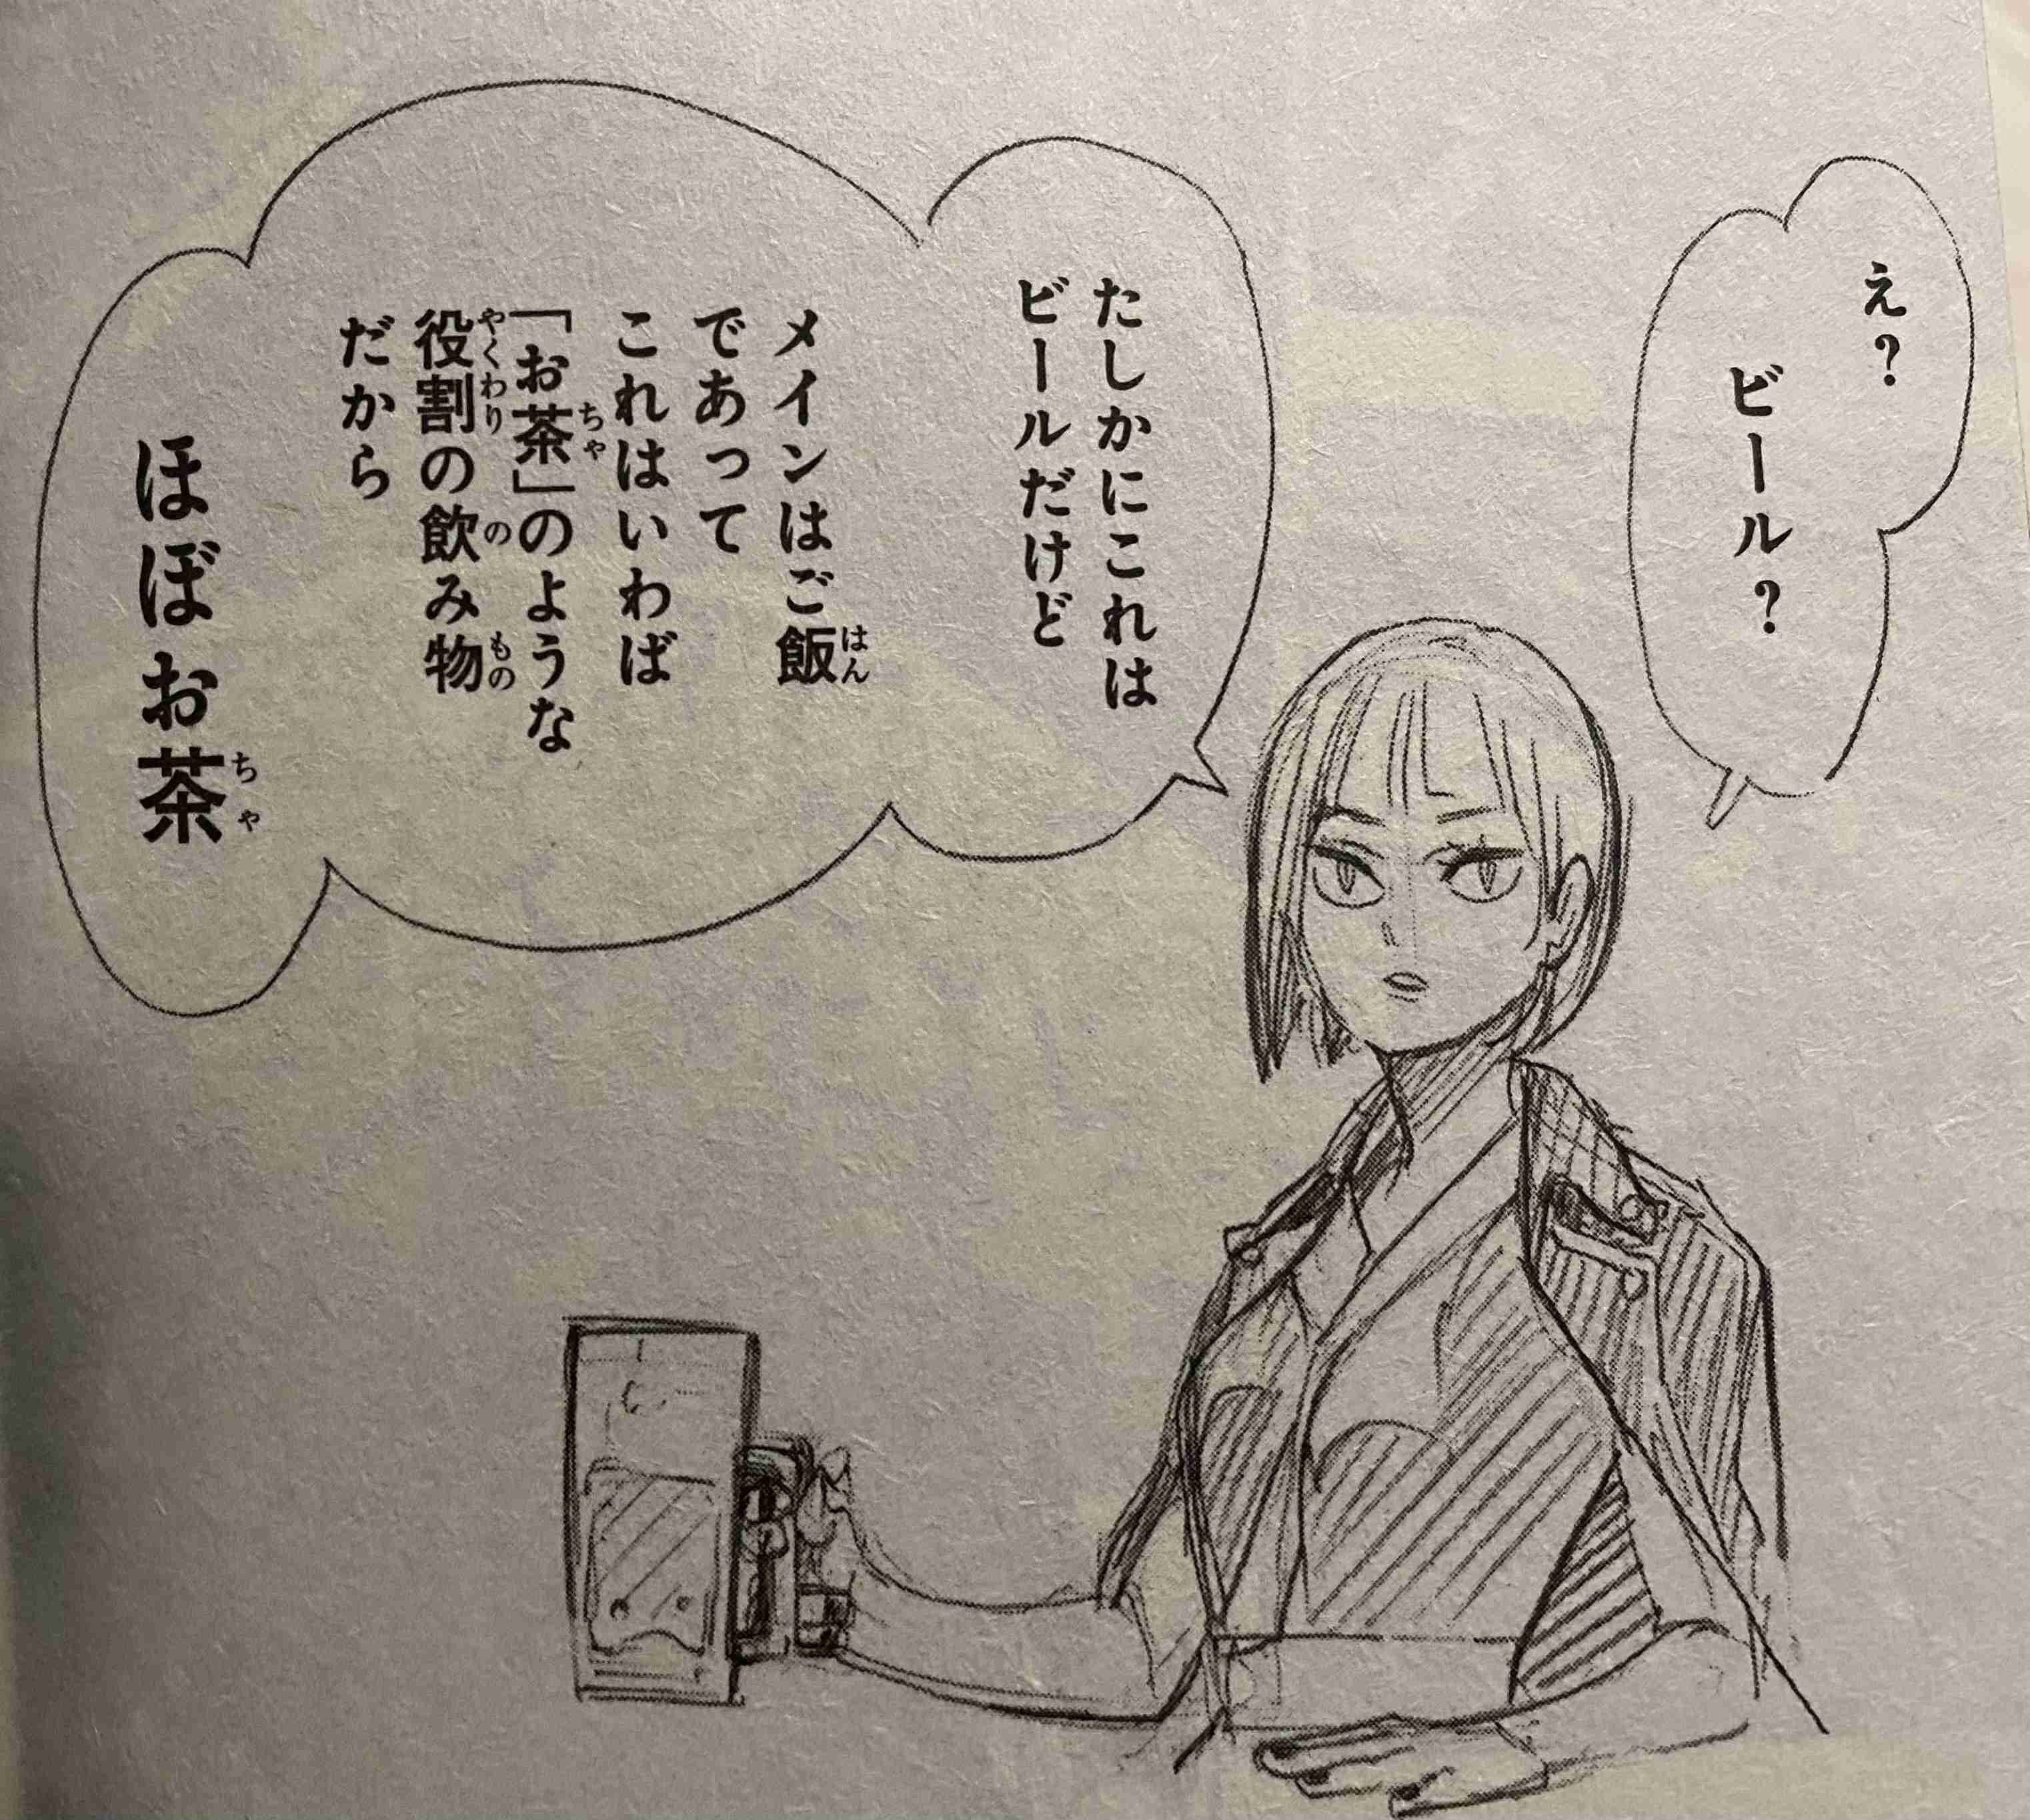 え？
ビール？
たしかにこれは
ビールだけど
メインはご飯
であって
これはいわば
「お茶」のような
役割の飲み物
だから
ほぼお茶